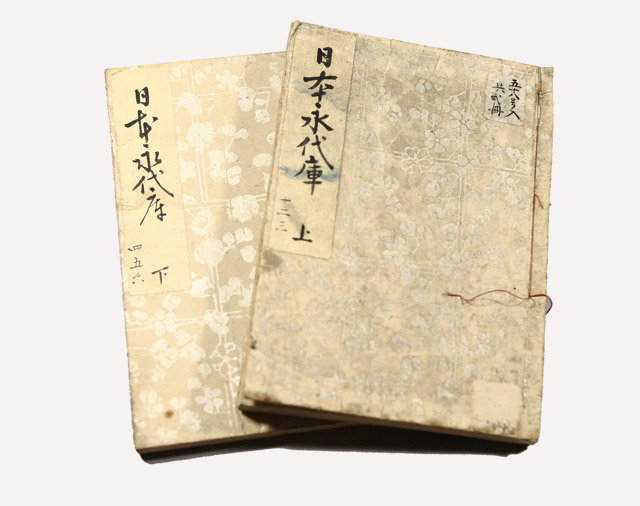 日本永代庫
一二三
上
共弐冊
日本永代庫
四五六
下